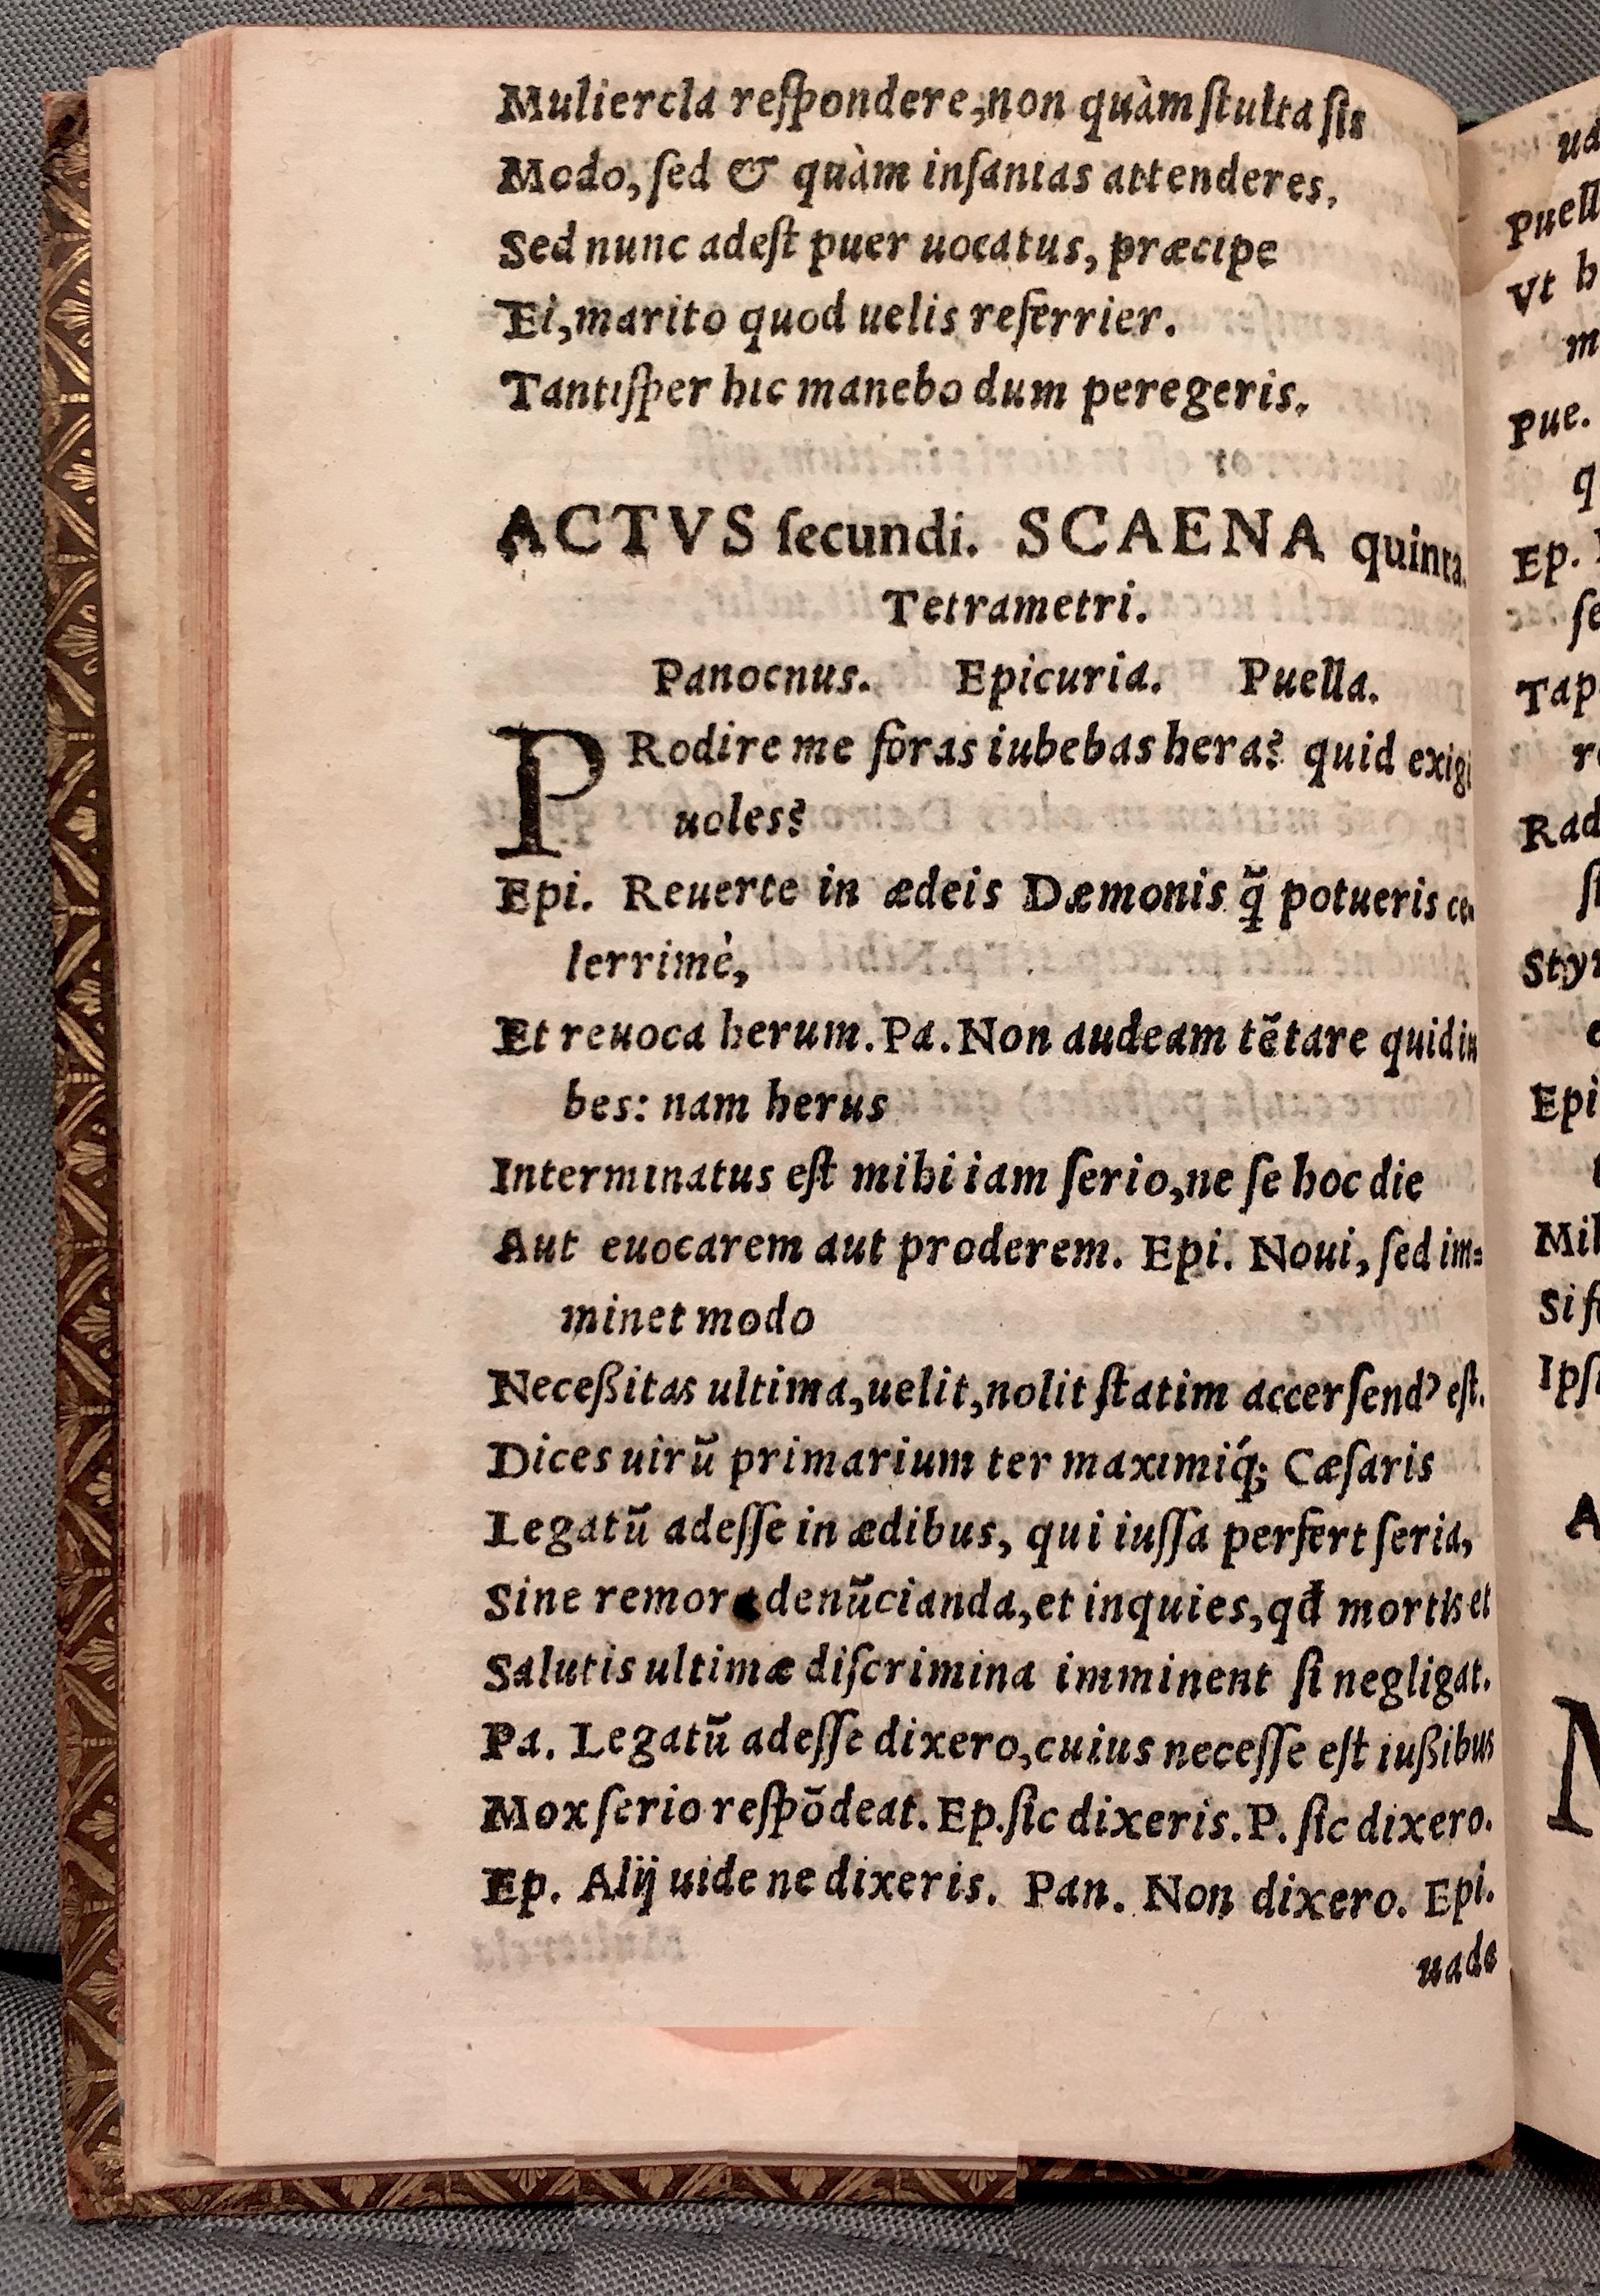 Muliercla reſpondere, non quàm ſtulta ſis
Modo, ſed & quàm inſanias attenderes.
Sed nunc adeſt puer uocatus, præcipe
Ei, marito quod uelis referrier.
Tantiſper hic manebo dum peregeris.
ACTVS ſecundi. SCAENA quinta.
Tetrametri.
Panocnus. Epicuria. Puella.
PRodire me foras iubebas hera? quid exigi
uoles?
Epi. Reuerte in ædeis Dæmonis q̃ potueris ce
lerrimè,
Et reuoca herum. Pa. Non audeam tẽtare quid iu
bes: nam herus
Interminatus eſt mihi iam ſerio, ne ſe hoc die
Aut euocarem aut proderem. Epi. Noui, ſed im=
minet modo
Neceßitas ultima, uelit, nolit ſtatim accerſendꝰ eſt.
Dices uirũ primarium ter maximiq́; Cæſaris
Legatũ adeſſe in ædibus, qui iuſſa perfert ſeria,
Sine remora denũcianda, et inquies, qđ mortis et
Salutis ultimæ diſcrimina imminent ſi negligat.
Pa. Legatũ adeſſe dixero, cuius neceſſe eſt iußibus
Mox ſerio reſpõdeat. Ep. ſic dixeris. P. ſic dixero.
Ep. Alij uide ne dixeris. Pan. Non dixero. Epi.
uade
Puell
Vt h
m
Pue.
q
Ep.
ſe
Tap
r
Rad
ſi
Sty
Epi
Mil
Si f
Ipſ
A